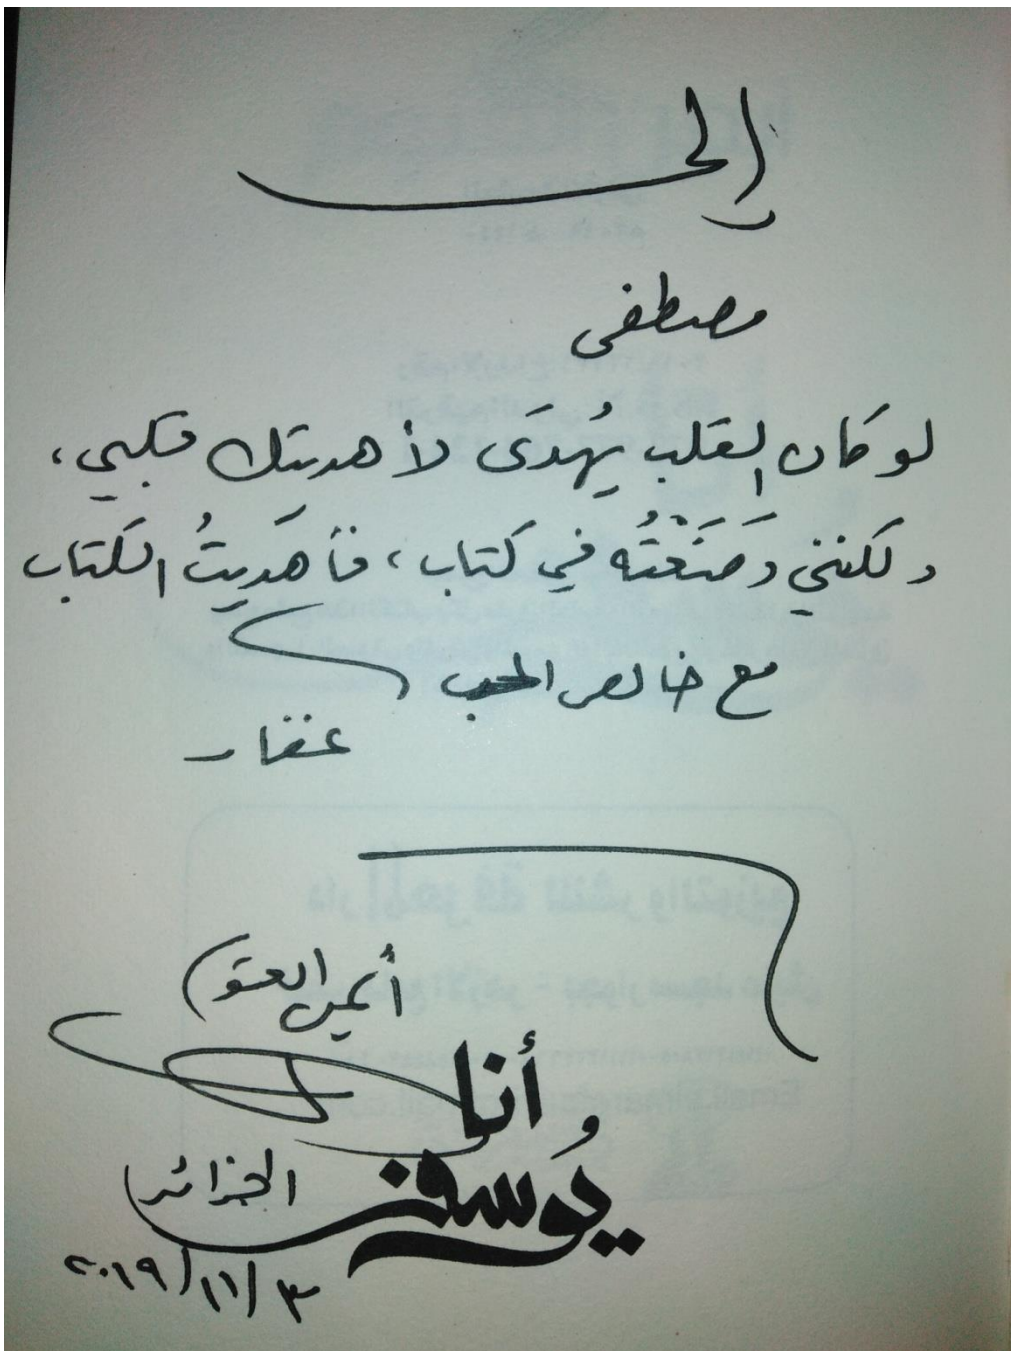 إلى
مصطفى
لو كان القلب يُهدَى لأهديتك قلبي،
ولكنني وَضَعْتُه في كتاب، فأهدَيتُ الكتاب
مع خالص الحب
أيمن العتوم
أنا
يُوسف
الجزائر
٣/١١/٢٠١٩